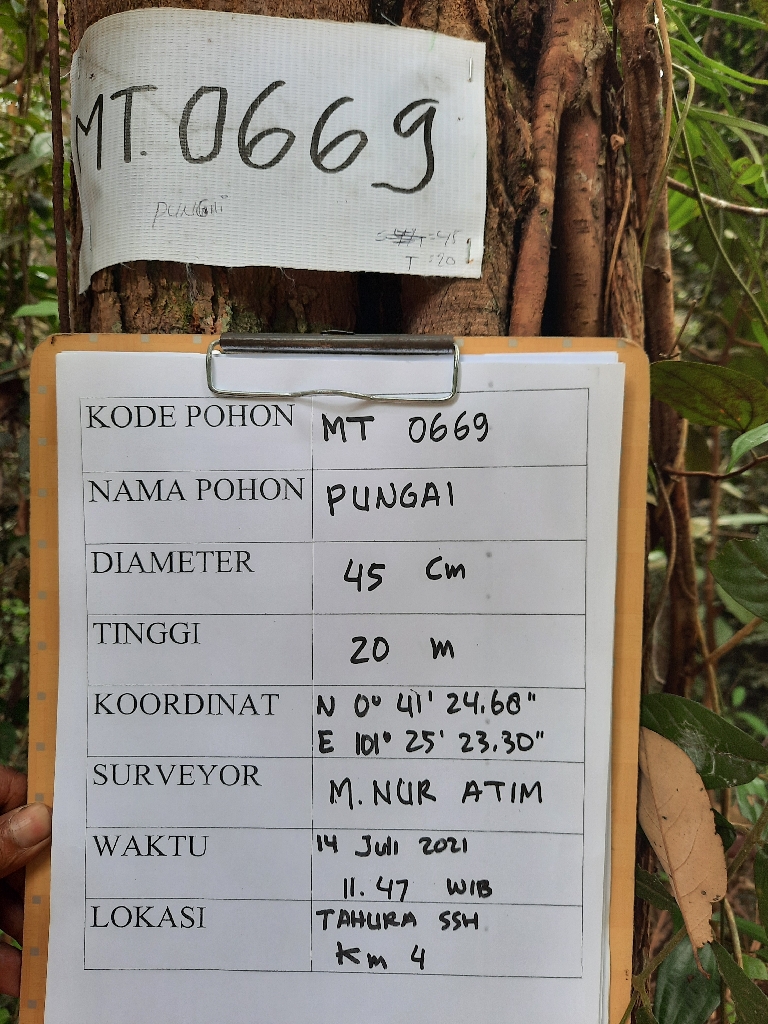 MT. 0669
PUNGAI
T =45
T :20
KODE POHON MT 0669
NAMA POHON PUNGAI
DIAMETER 45 Cm
TINGGI 20 m
KOORDINAT N 0° 41' 24.60"
E 101° 25' 23.30"
SURVEYOR M. NUR ATIM
WAKTU 14 Juli 2021
11.47 WIB
LOKASI TAHURA SSH
Km 4